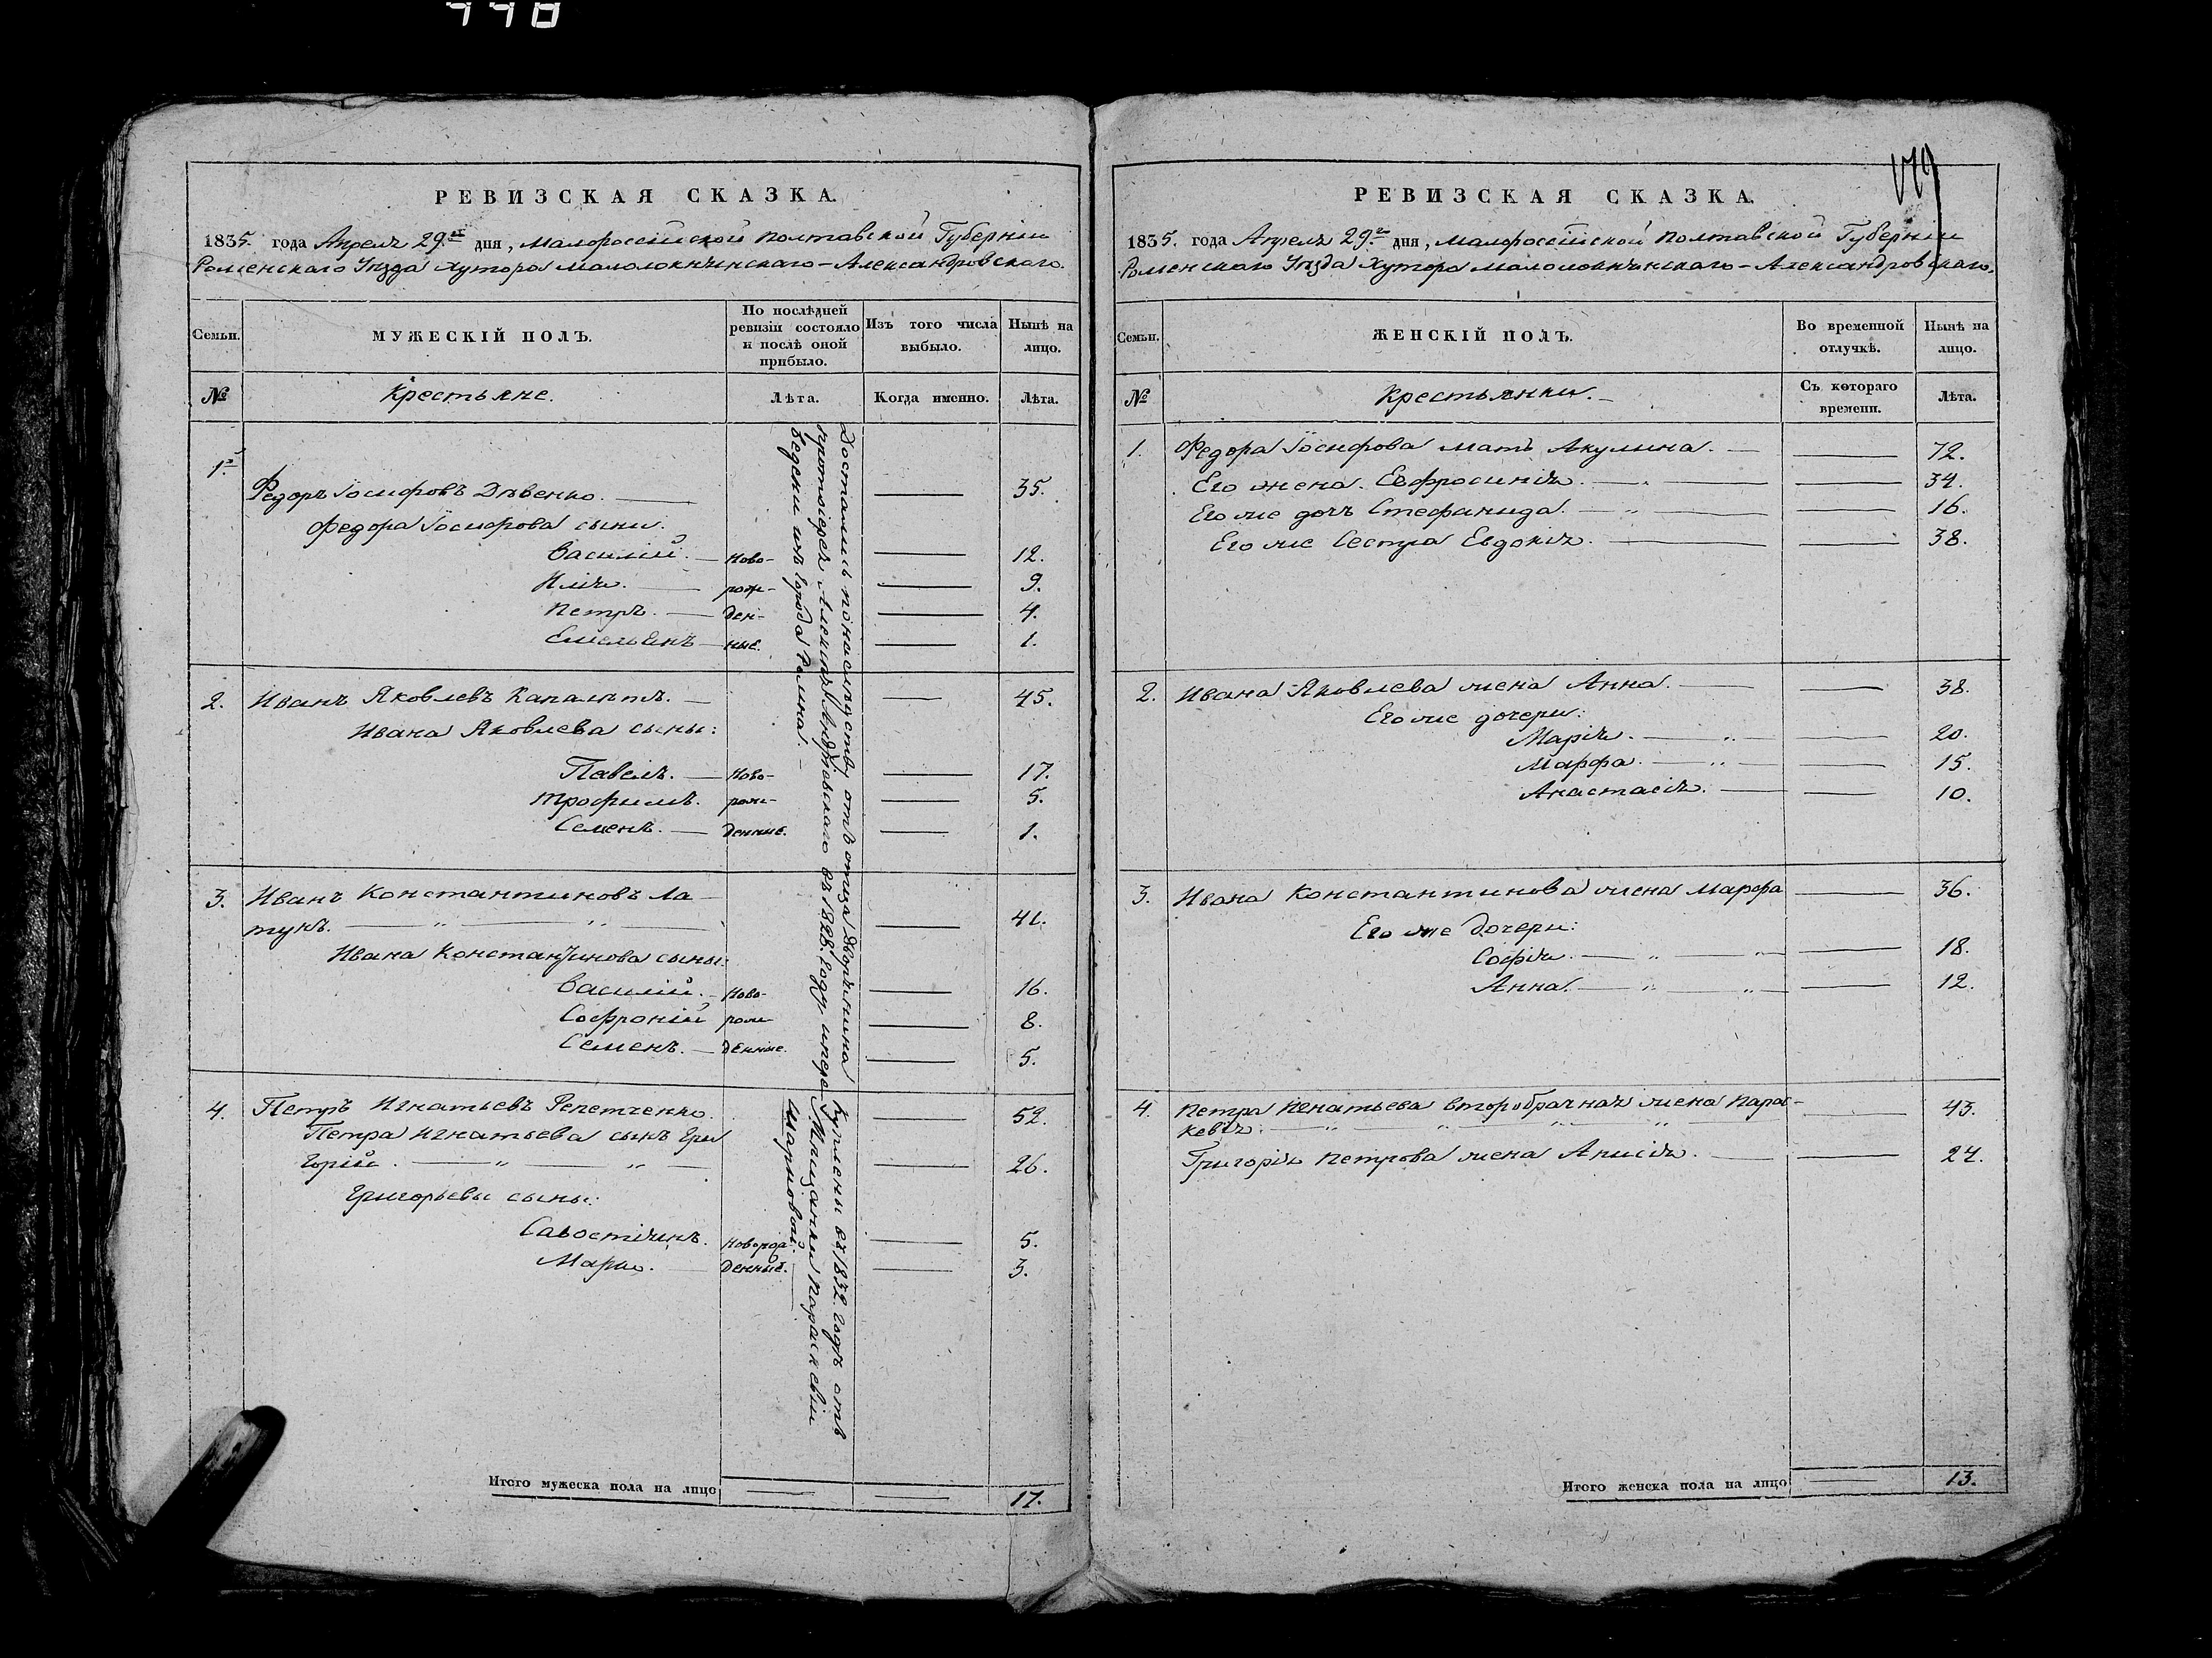 РЕВИЗСКАЯ СКАЗКА.
1835. года Апреля 29.го дня, Малороссійской Полтавской Губерніи
Роменскаго Уезда Хутора Малолокнянскаго-Александровскаго.
Семьи.
МУЖЕСКІЙ ПОЛЪ.
По послѣдней ревизіи состояло и послѣ оной прибыло.
Изъ того числа выбыло.
Нынѣ на лицо.
№
Крестьяне.
Лѣта.
Когда именно.
Лѣта.
1.
Федоръ Іосифовъ 35.
Федора Іосифова сыны.
Василій. Ново- 12.
Илія. рож- 9.
Петръ. ден- 4.
Емельянъ ные. 1.
2. Иванъ Яковлевъ 45.
Ивана Яковлева сыны:
Павелъ. Ново- 17.
Трофимъ. рож- 5.
Семенъ. денные. 1.
3. Иванъ Константиновъ Ла-
тукъ. 41.
Ивана Константинова сыны:
Василій. Ново- 16.
Софроній рож- 8.
Семенъ. денные. 5.
4. Петръ Игнатьевъ Репетченко. 52.
Петра Игнатьева сынъ Гри
горій. 26.
Григорьевы сыны:
Савостіянъ. Новорож- 5.
Марко. денные. 3.
Достались по наслѣдству отъ отца Дворянина
протоіерея Алексѣя въ 1828. году, и пере
ведены изъ города Ромна.
Куплены въ 1832. годѣ отъ
Мащанки Параскевіи
Шарповой.
Итого мужеска пола на лицо 17.
РЕВИЗСКАЯ СКАЗКА.
1835. года Апреля 29.го дня, Малороссійской Полтавской Губерніи
Роменскаго Уезда Хутора Малолокнянскаго-Александровскаго.
Семьи.
ЖЕНСКІЙ ПОЛЪ.
Во временной отлучкѣ.
Нынѣ на лицо.
№
Крестьянки.
Съ котораго времени.
Лѣта.
1. Федора Іосифова мать Акулина. 72.
Его жена Евфросинія. 34.
Его же дочь Стефанида. 16.
Его же Сестра Евдокія. 38.
2. Ивана Яковлева жена Анна. 38.
Его же дочери:
Марія. 20.
Марфа. 15.
Анастасія. 10.
3. Ивана Константинова жена Марфа 36.
Его же дочери:
Софія. 18.
Анна. 12.
4. Петра Игнатьева второбрачная жена Парас-
кевія. 43.
Григорія Петрова жена Анисія. 24.
Итого женска пола на лицо 13.